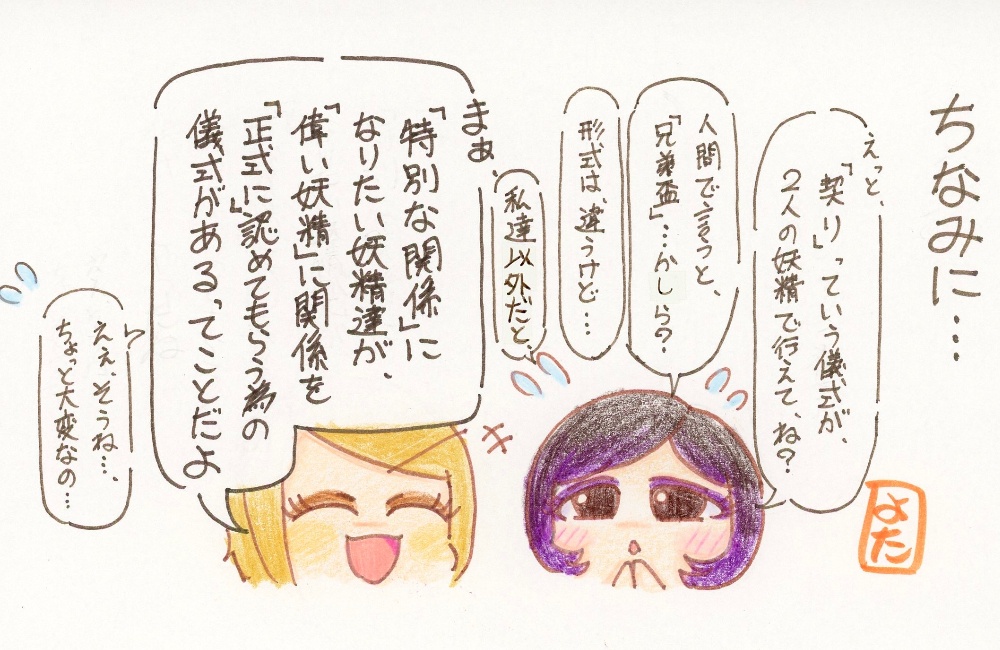 ちなみに…
えっと、
「契り」っていう儀式が、
2人の妖精で行えて、ね？
人間で言うと、
「兄弟盃」…かしら？
形式は、違うけど…
私達以外だと、
まぁ、
「特別な関係」に
なりたい妖精達が、
「偉い妖精」に関係を
「正式に」認めてもらう為の
儀式がある、ってことだよ
ええ、そうね…、
ちょっと大変なの…
よた